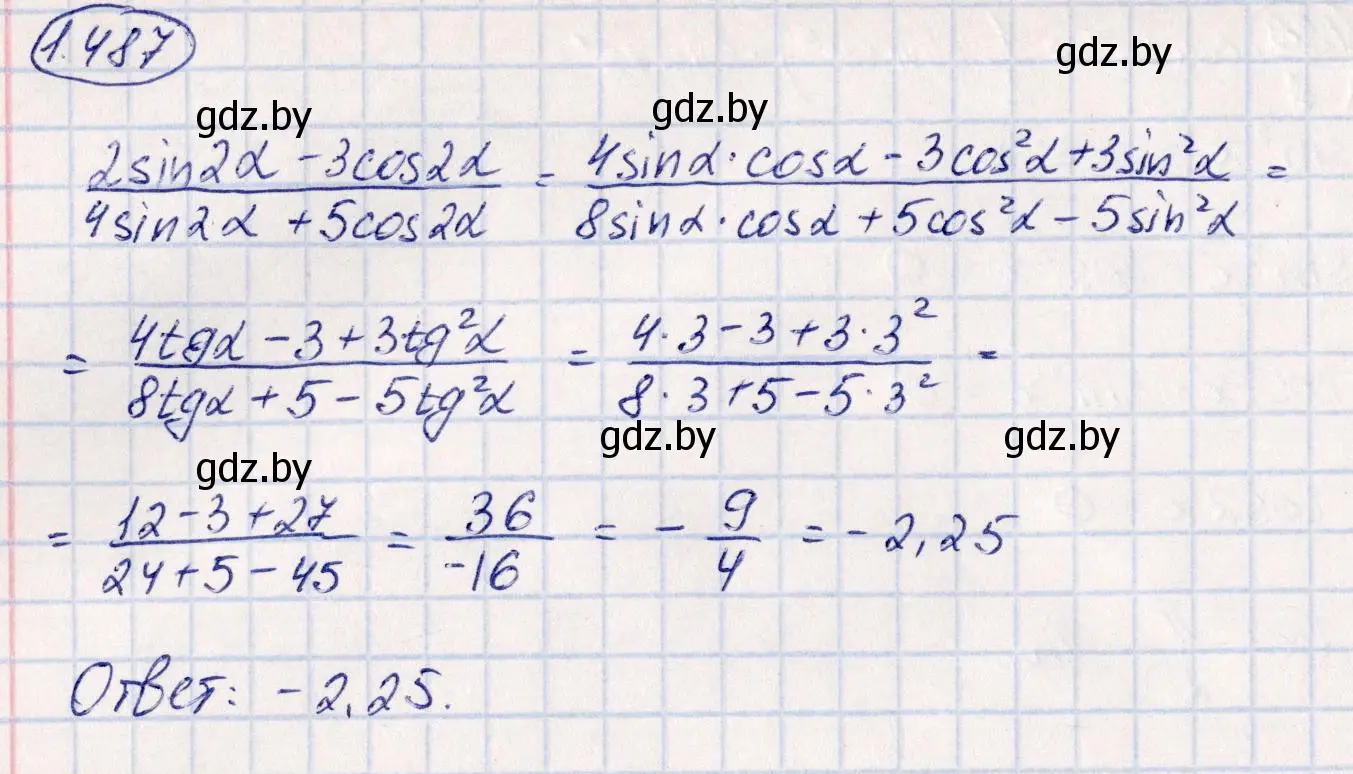 1.487
gdz.by
gdz.by gdz.by
2sin2α - 3cos2α / 4sin2α + 5cos2α = 4sinα·cosα - 3cos²α + 3sin²α / 8sinα·cosα + 5cos²α - 5sin²α =
= 4tgα - 3 + 3tg²α / 8tgα + 5 - 5tg²α = 4·3 - 3 + 3·3² / 8·3 + 5 - 5·3² =
gdz.by gdz.by
gdz.by
= 12 - 3 + 27 / 24 + 5 - 45 = 36 / -16 = - 9/4 = -2,25
Ответ: -2,25.